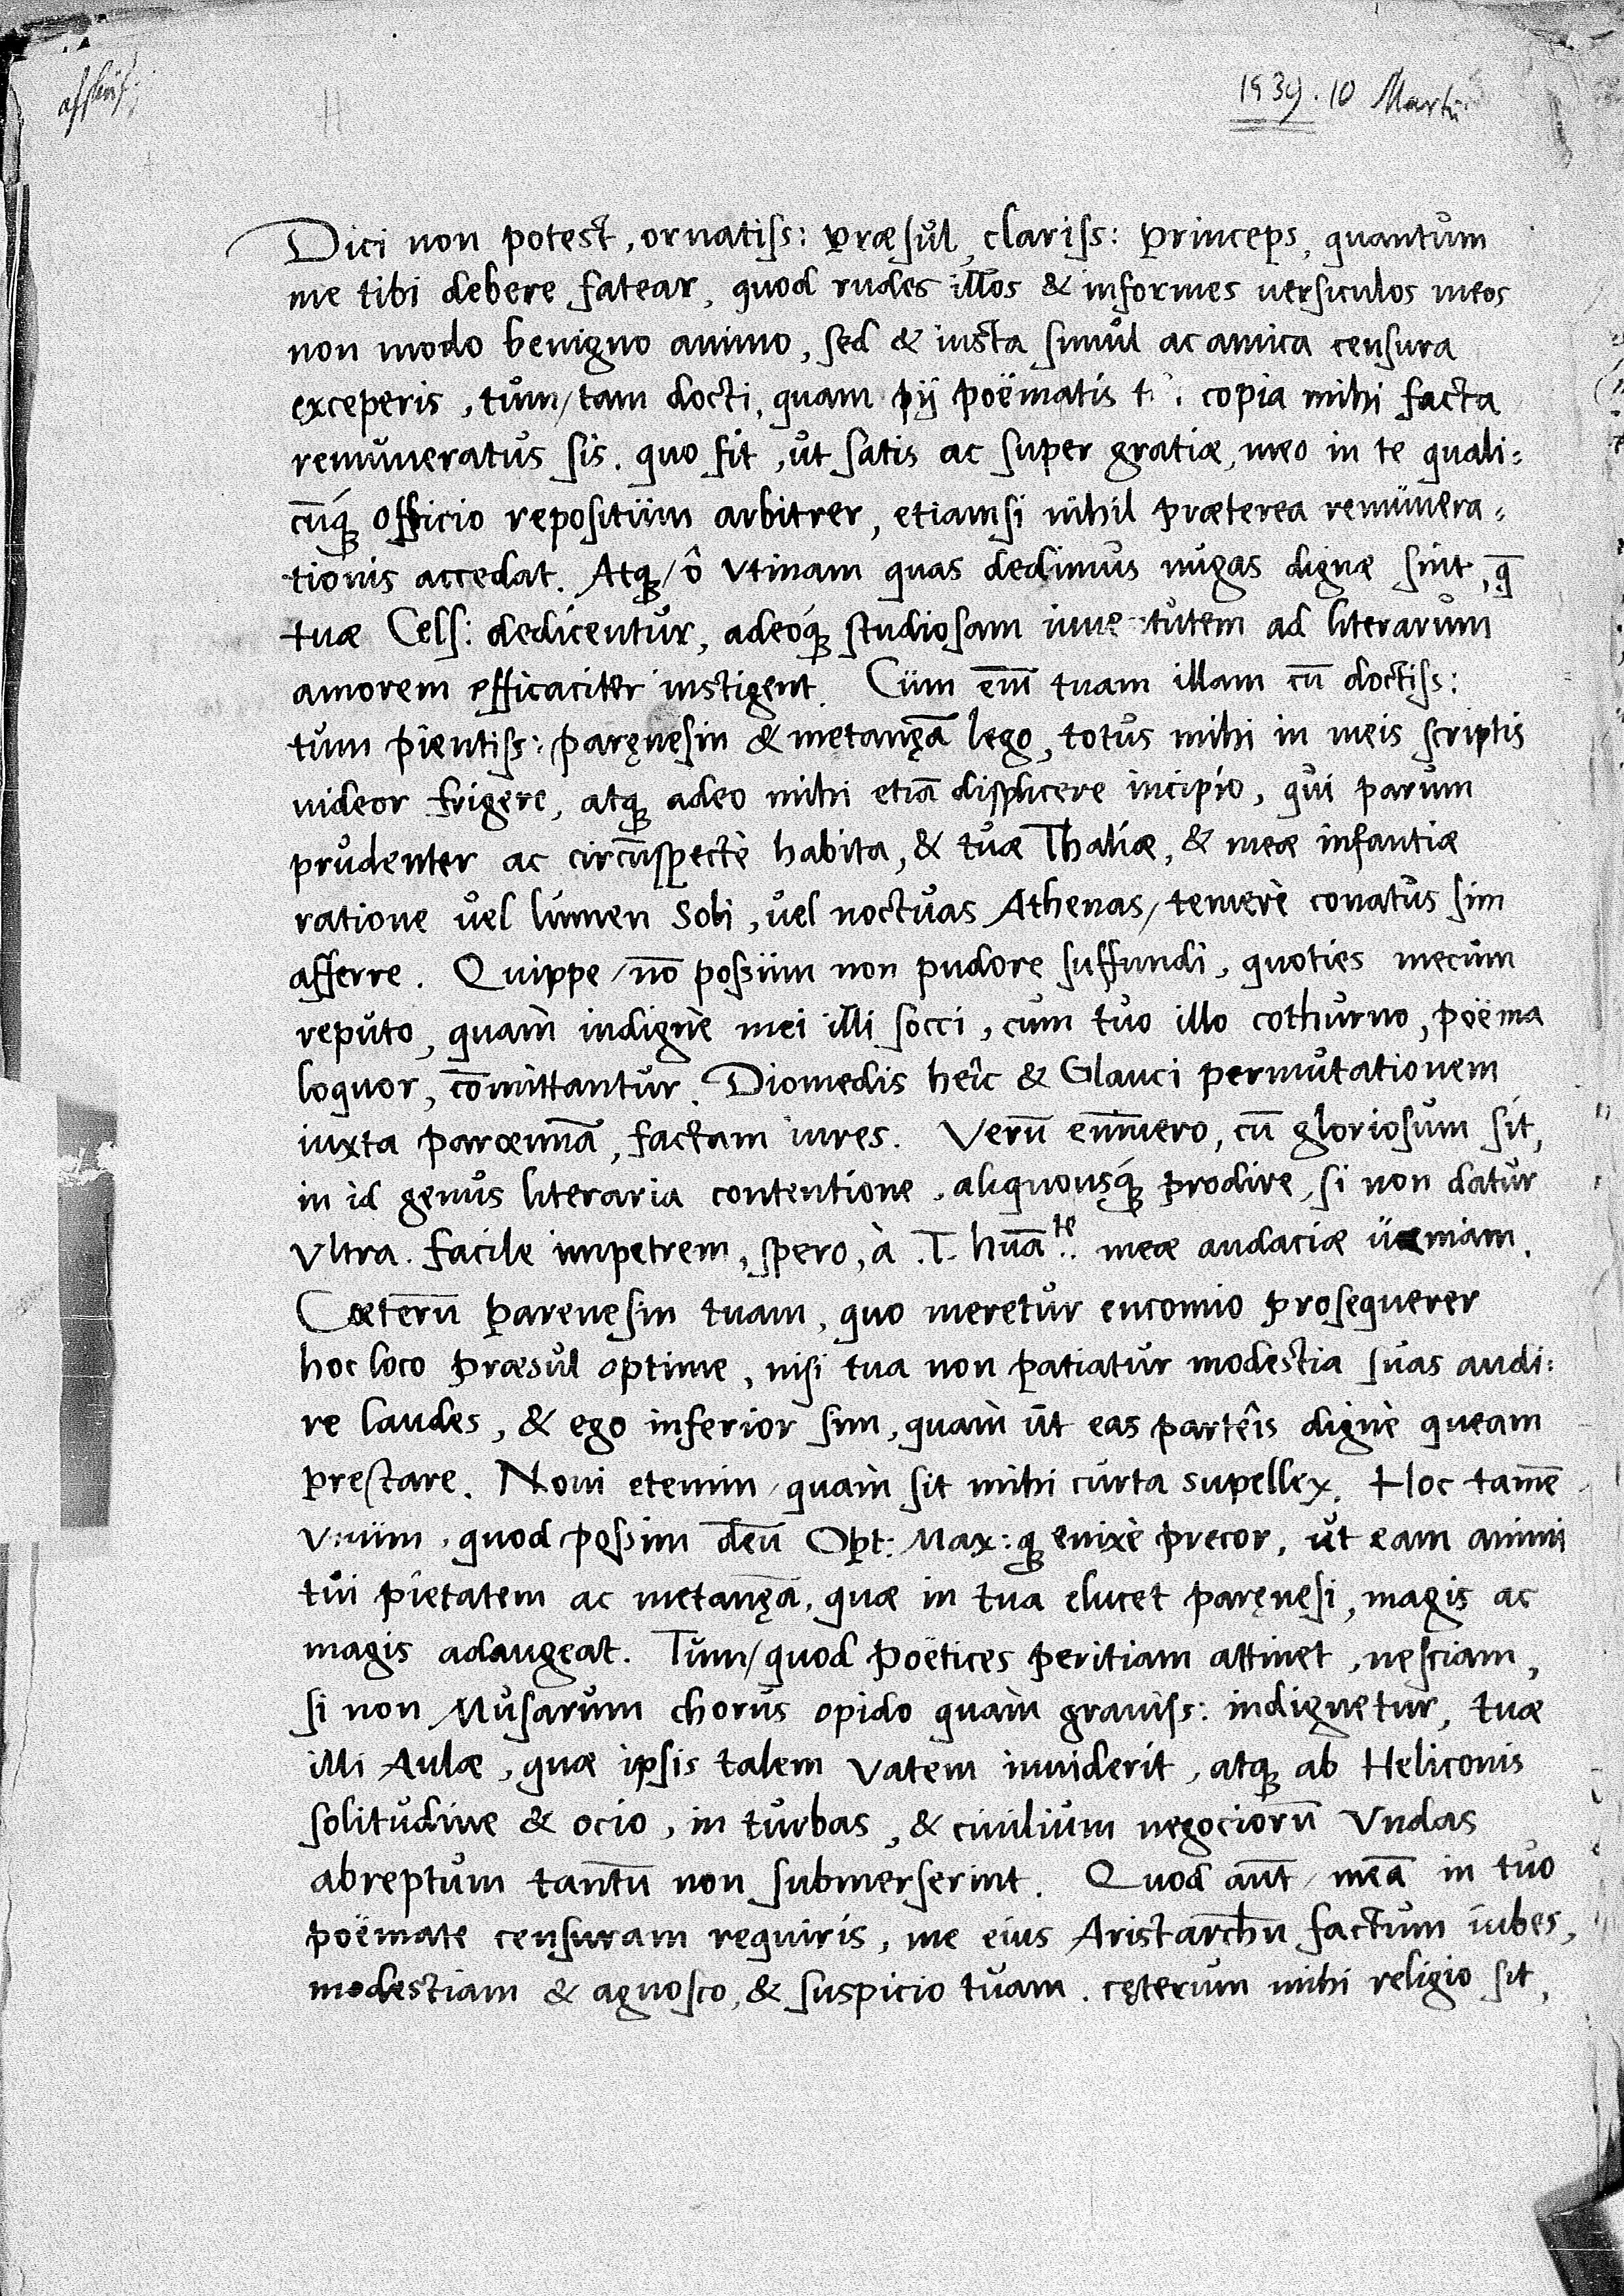 1539. 10 Martii
Dici non potest, ornatiss: præsul, clariss: princeps, quantum
me tibi debere fatear, quod rudes illos & informes uersiculos meos
non modo benigno animo, sed & iusta simul ac amica censura
exceperis, tum/ tam docti, quam pij poëmatis copia mihi facta
remuneratus sis. quo fit, ut satis ac super gratiæ, meo in te quali:
cūq́ꝫ officio repositum arbitrer, etiamsi nihil præterea remunera:
tionis accedat. Atqꝫ/ ô vtinam quas dedimus nugas dignæ sint, q̄
tuæ Cels: dedicentur, adeóqꝫ studiosam iuuentutem ad literarum
amorem efficaciter instigent. Cum em̄ tuam illam cū doctiss:
tum pientiss: paręnesin & metanęā lego, totus mihi in meis scriptis
uideor frigere, atqꝫ adeo mihi etiā displicere incipio, qui parum
prudenter ac circūspectè habita, & tuæ Thaliæ, & meæ infantiæ
ratione uel lumen Soli, uel noctuas Athenas/ temerè conatus sim
afferre. Quippe/ nō possum non pudore suffundi, quoties mecum
reputo, quàm indignè mei illi socci, cum tuo illo cothurno, poëma
loquor, cōmittantur. Diomedis heîc & Glauci permutationem
iuxta parœmiā, factam iures. Verū enimuero, cū gloriosum sit,
in id genus literaria contentione, aliquousq́ꝫ prodire, si non datur
vltra. facile impetrem, spero, à .T. huāᵗᵉ. meæ audaciæ ueniam.
Cæterū parenesin tuam, quo meretur encomio prosequerer
hoc loco præsul optime, nisi tua non patiatur modestia suas audi:
re laudes, & ego inferior sim, quàm ut eas parteîs dignè queam
prestare. Noui etenim/ quàm sit mihi curta supellex. Hoc tamē
vnum, quod possim deū Opt: Max: qꝫ enixè precor, ut eam animi
tui pietatem ac metanęā, quæ in tua elucet paręnesi, magis ac
magis adaugeat. Tum/ quod poëtices peritiam attinet, nesciam,
si non Musarum chorus opido quàm grauiss: indignetur, tuæ
illi Aulæ, quæ ipsis talem vatem inuiderit, atqꝫ ab Heliconis
solitudine & ocio, in turbas, & ciuilium negociorū vndas
abreptum tantū non submerserint. Quod aūt/ meā in tuo
poëmate censuram requiris, me eius Aristarchū factum iubes,
modestiam & agnosco, & suspicio tuam. cęterum mihi religio sit,